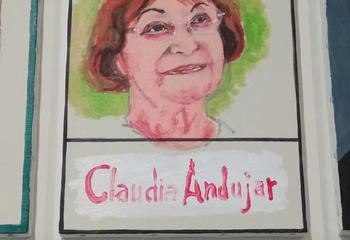 Claudia Andujar